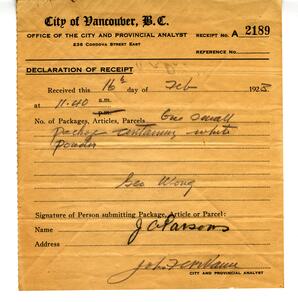 City of Vancouver, B.C.
OFFICE OF THE CITY AND PROVINCIAL ANALYST
236 CORDOVA STREET EAST
RECEIPT NO. A 2189
REFERENCE NO.
DECLARATION OF RECEIPT
Received this 16th day of Feb 192
at 11.40 a.m.
p.m.
No. of Packages, Articles, Parcels: One small
package containing white
powder
Geo Wong
Signature of Person submitting Package, Article or Parcel:
Name J C Parsons
Address
CITY AND PROVINCIAL ANALYST